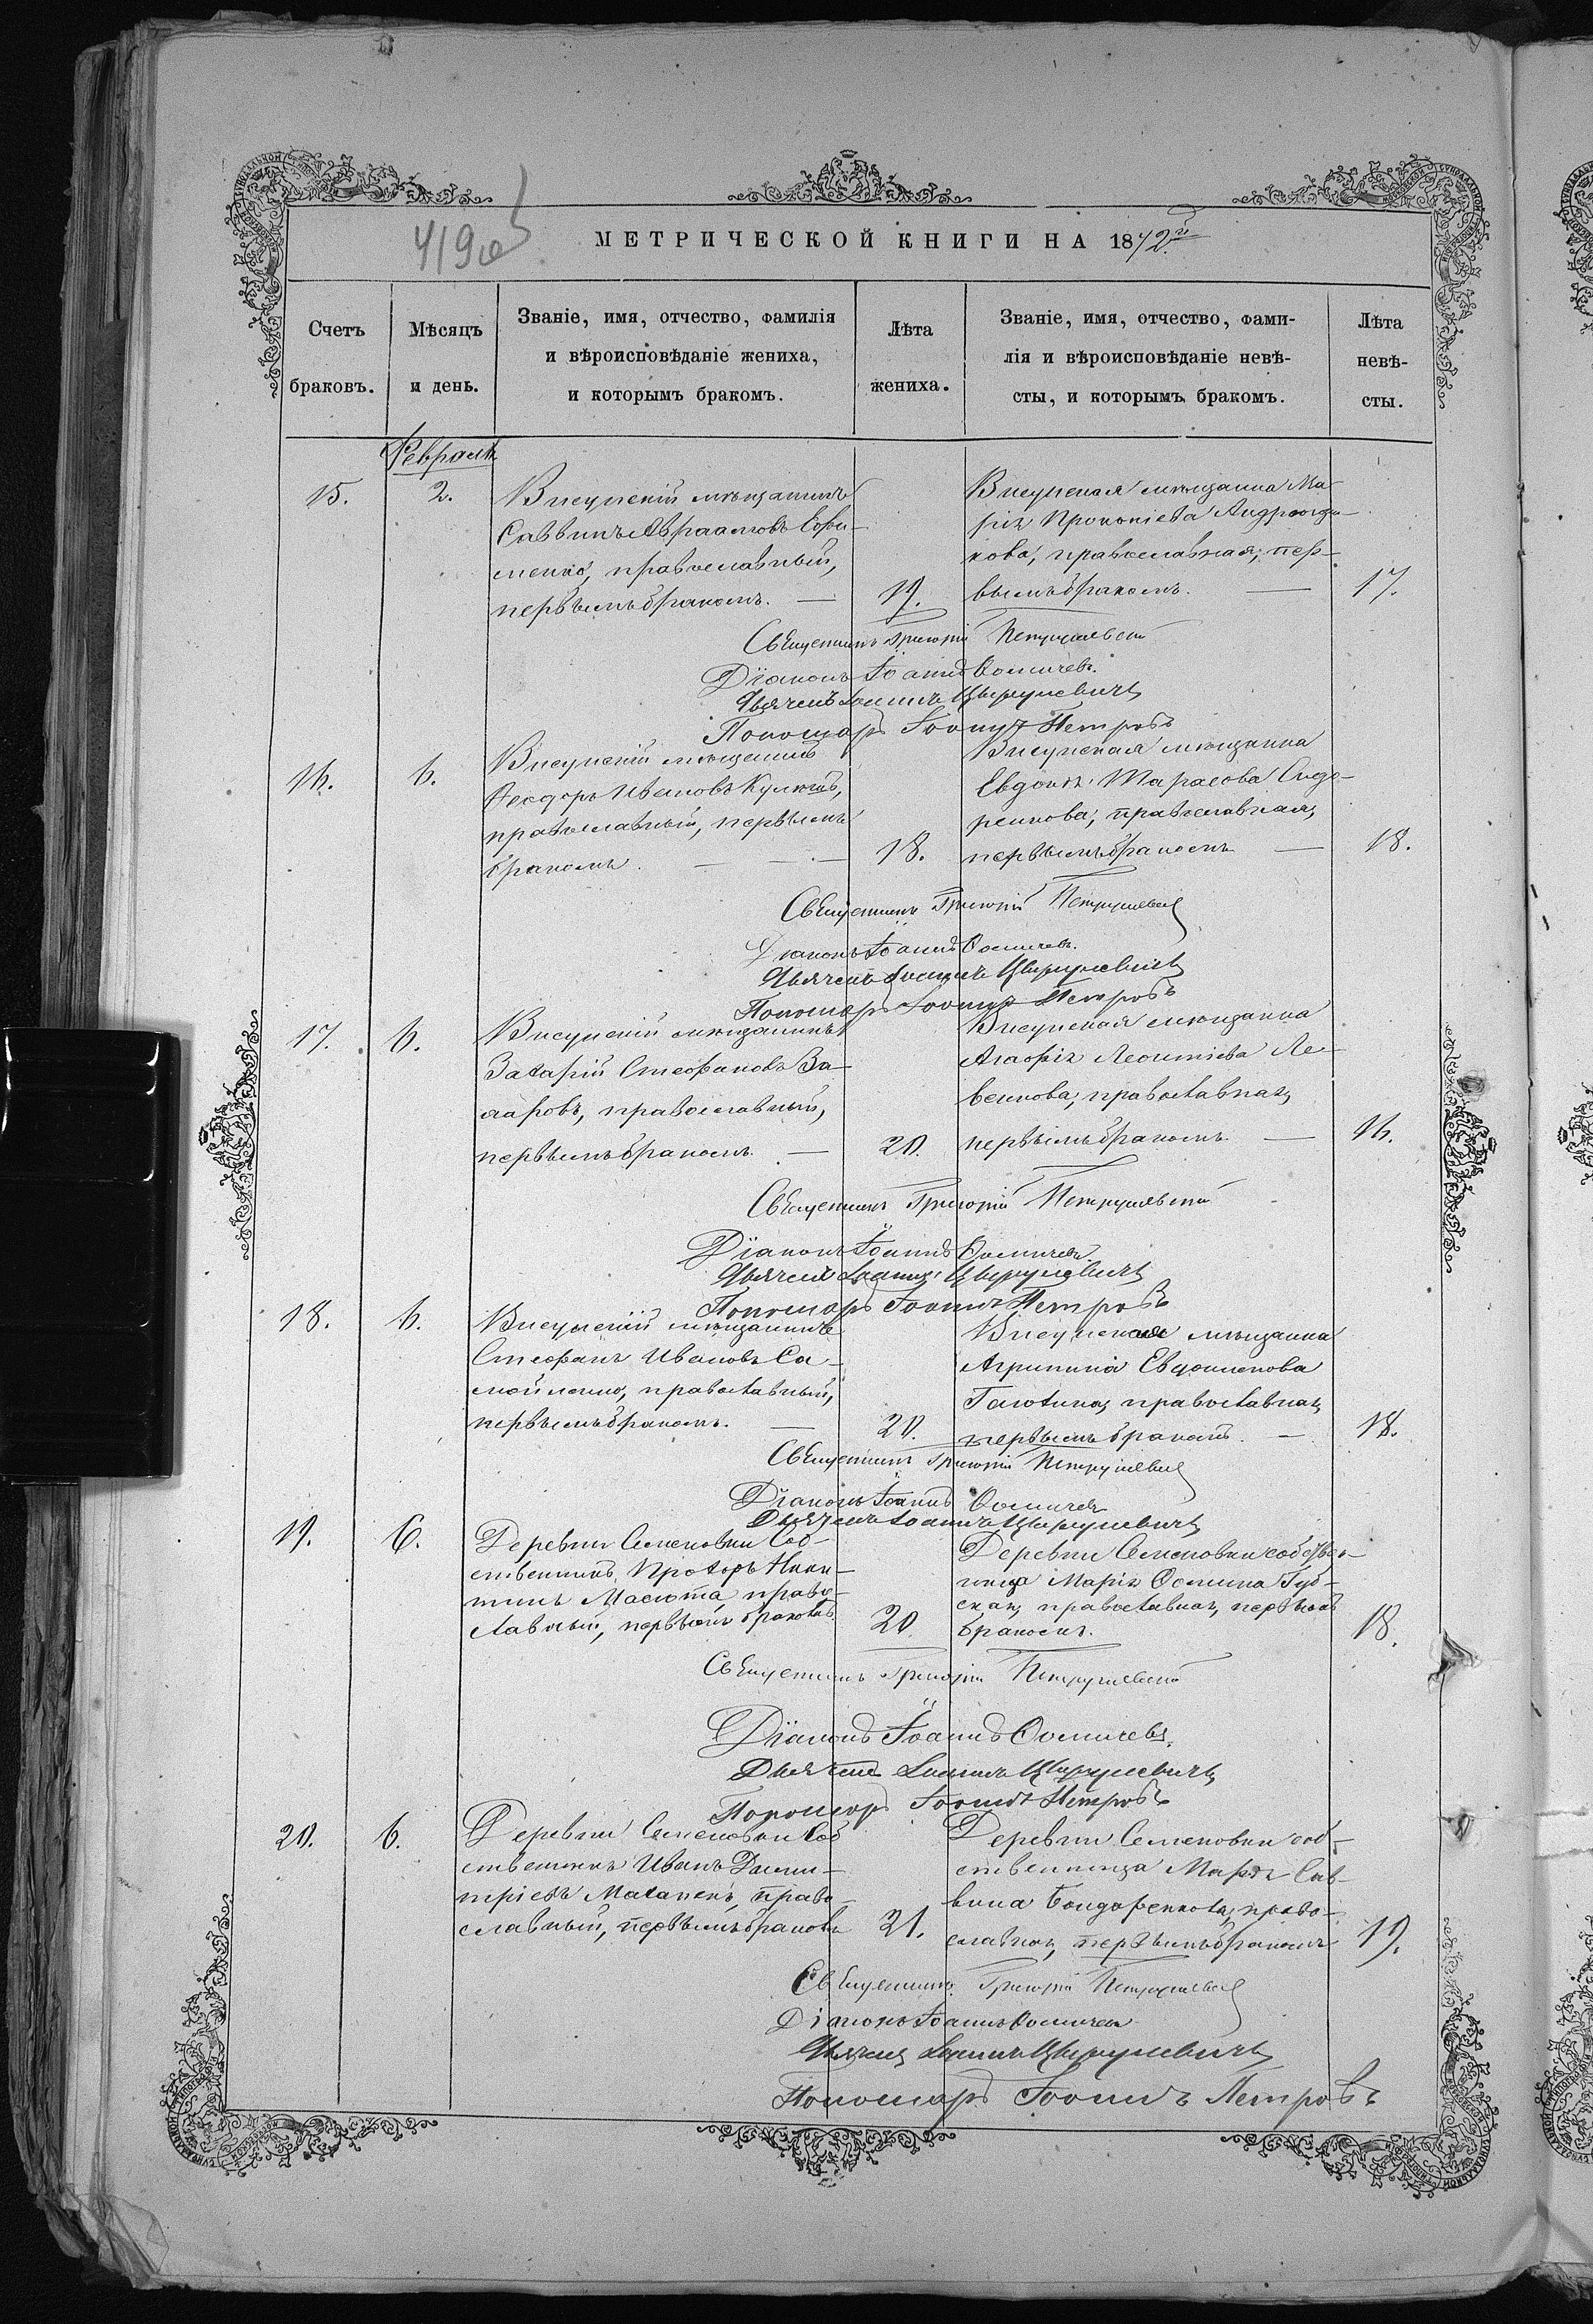 419об
МЕТРИЧЕСКОЙ КНИГИ НА 1872й
Счетъ браковъ.
Мѣсяцъ и день.
Званіе, имя, отчество, фамилія
и вѣроисповѣданіе жениха,
и которымъ бракомъ.
Лѣта
жениха.
Званіе, имя, отчество, фами-
лія и вѣроисповѣданіе невѣ-
сты, и которымъ бракомъ.
Лѣта
невѣ-
сты.
Февраля
15.
2.
Висунскій мѣщанинъ
Саввинъ Авраамовъ Ефи-
менко, православный,
первымъ бракомъ. —
19.
Висунская мѣщанка Ма-
рія Прокопіева
кова, православная, пер-
вымъ бракомъ. —
17.
Священникъ Григорій
Діаконъ Іоаннъ Ѳомичевъ.
Дьячекъ Іоаннъ Цѣшрулевичъ
Пономарь Іоаннъ Петровъ
16.
6.
Висунскій мѣщанинъ
Ѳеодоръ Ивановъ
православный, первымъ
бракомъ. —
18.
Висунская мѣщанка
Евдокія Тарасова Сиде-
ренкова, православная,
первымъ бракомъ —
18.
Священникъ Григорій
Діаконъ Іоаннъ Ѳомичевъ.
Дьячекъ Іоаннъ
Пономарь Іоаннъ Петровъ
17.
6.
Висунскій мѣщанинъ
Захарій Стефановъ За-
харовъ, православный,
первымъ бракомъ. —
20.
Висунская мѣщанка
Агафія Леонтіева Ле-
венкова, православная,
первымъ бракомъ —
16.
Священникъ Григорій
Діаконъ Іоаннъ Ѳомичевъ.
Дьячекъ Іоаннъ
Пономарь Іоаннъ Петровъ
18.
6.
Висунскій мѣщанинъ
Стефанъ Ивановъ Са-
мойленко, православный,
первымъ бракомъ. —
20.
Висунская мѣщанка
Агрипина Евдокимова
православная,
первымъ бракомъ. —
18.
Священникъ Григорій
Діаконъ Іоаннъ Ѳомичевъ
Дьячекъ Іоаннъ
19.
6.
Деревни Семеновки соб-
ственникъ Прохоръ Ники-
тинъ Масюта, право-
славный, первымъ бракомъ
20.
Деревни Семеновки собствен-
ница Марія Ѳомина Губ-
ская, православная, первымъ
бракомъ.
18.
Священникъ Григорій
Діаконъ Іоаннъ Ѳомичевъ.
Дьячекъ Іоаннъ
Пономарь Іоаннъ Петровъ
20.
6.
Деревни Семеновки соб
ственникъ Иванъ Дими-
тріевъ право-
славный, первымъ бракомъ
21.
Деревни Семеновки соб-
ственница Марія Сав-
вина Бондаренкова, право-
славная, первымъ бракомъ
19.
Священникъ Григорій
Діаконъ Іоаннъ Ѳомичевъ
Дьячекъ Іоаннъ
Пономарь Іоаннъ Петровъ